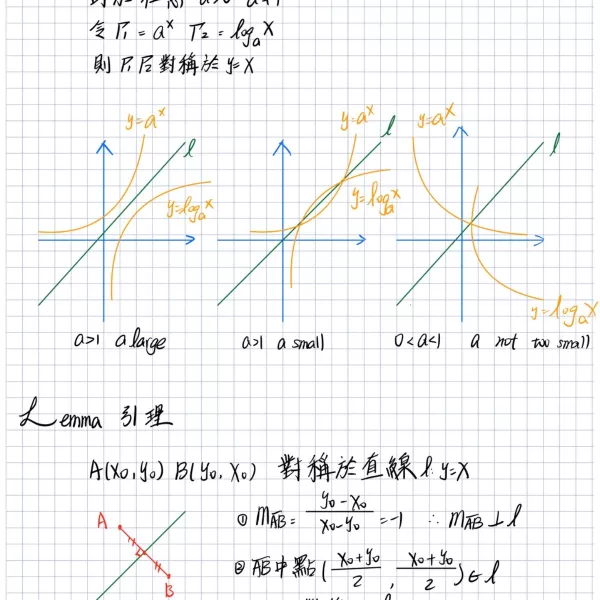 令 Γ₁ = aˣ Γ₂ = logₐX
則 Γ₁ Γ₂ 對稱於 y=X
y=aˣ
l
y=logₐX
y=aˣ
l
y=logₐX
y=aˣ
l
y=logₐX
a>1 a large
a>1 a small
0<a<1 a not too small
Lemma 引理
A(X₀,y₀) B(y₀,X₀) 對稱於直線 l: y=X
A
B
① m_AB = (y₀-X₀)/(X₀-y₀) = -1 ∴ m_AB ⊥ l
② AB中點 ((X₀+y₀)/2, (X₀+y₀)/2) ∈ l